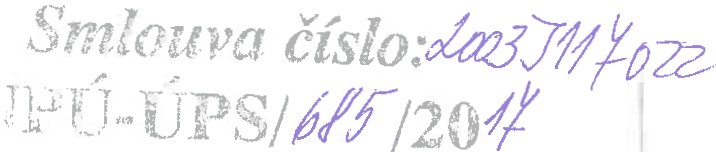 Smlouva číslo: 2003J117022
IPÚ-ÚPS/685/2017